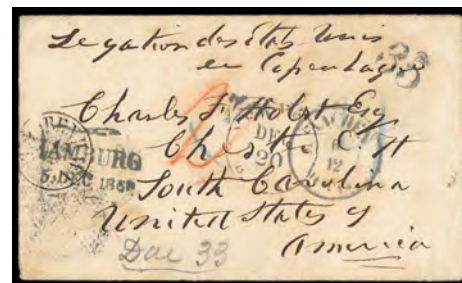 Legation des états Unis
en Copenhague
33
Charles F Holst Esq
Chester C. H
South Carolina
United States of
America
Due 33
HAMBURG
5. DEC 186
DE
20
12